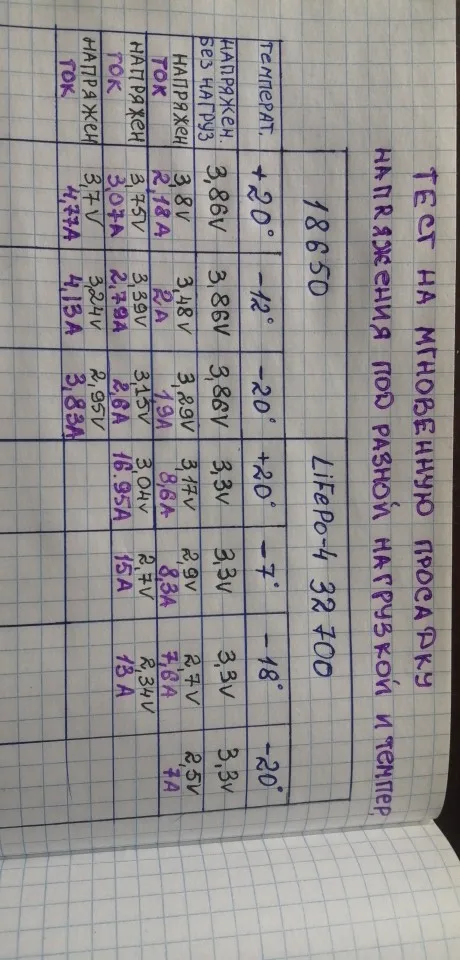 ТЕСТ НА МГНОВЕННУЮ ПРОСАДКУ
НАПЯЖЕНИЯ ПОД РАЗНОЙ НАГРУЗКОЙ И ТЕМПЕР.
18650 LiFePo-4 32700
ТЕМПЕРАТ. +20° -12° -20° +20° -7° -18° -20°
НАПРЯЖЕН. БЕЗ НАГРУЗ 3,86V 3,86V 3,86V 3,3V 3,3V 3,3V 3,3V
НАПРЯЖЕН 3,8V 3,48V 3,29V 3,17V 2,9V 2,7V 2,5V
ТОК 2,18A 2A 1,9A 8,6A 8,3A 7,6A 7A
НАПРЯЖЕН 3,75V 3,39V 3,15V 3,04V 2,7V 2,34V
ТОК 3,07A 2,79A 2,6A 16.95A 15A 13A
НАПРЯЖЕН 3,7V 3,24V 2,95V
ТОК 4,77A 4,13A 3,83A